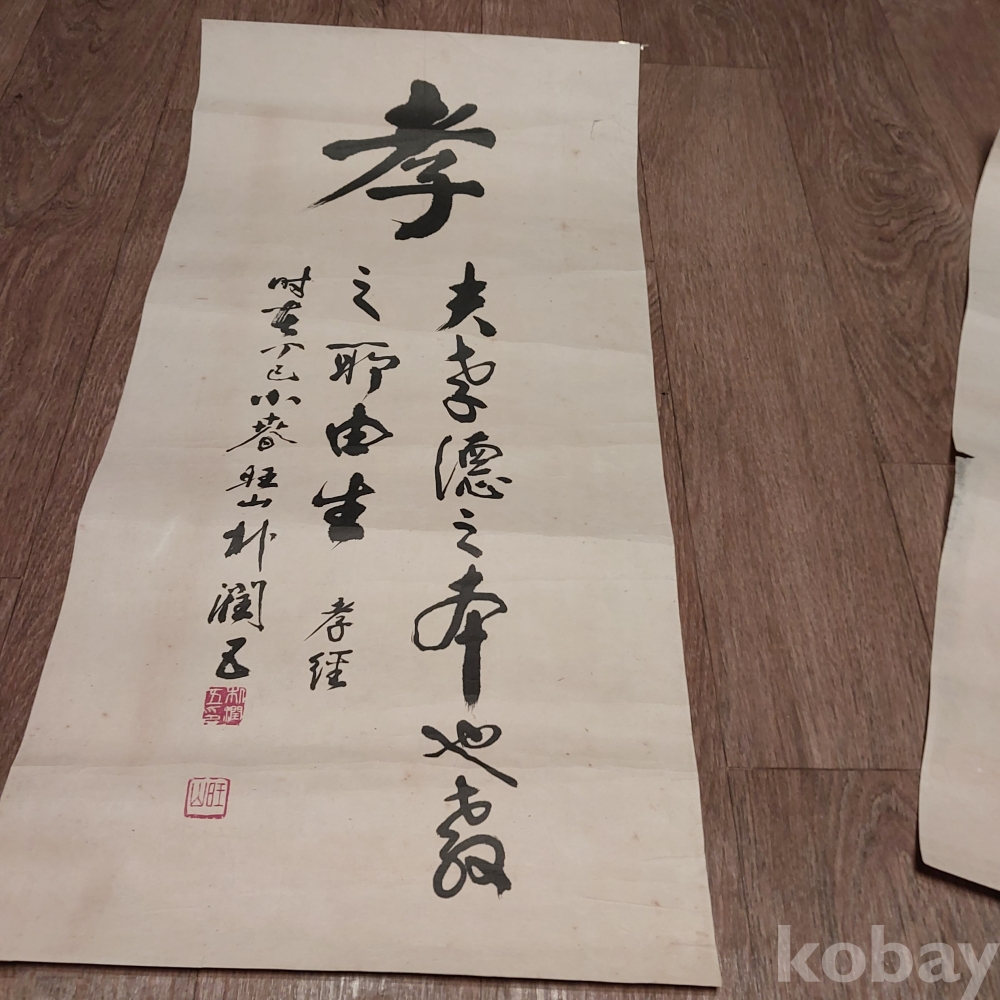 孝
夫孝德之本也教
之所由生
孝經
时在丁巳小春旺山朴潤五
朴潤五印
旺山
kobay